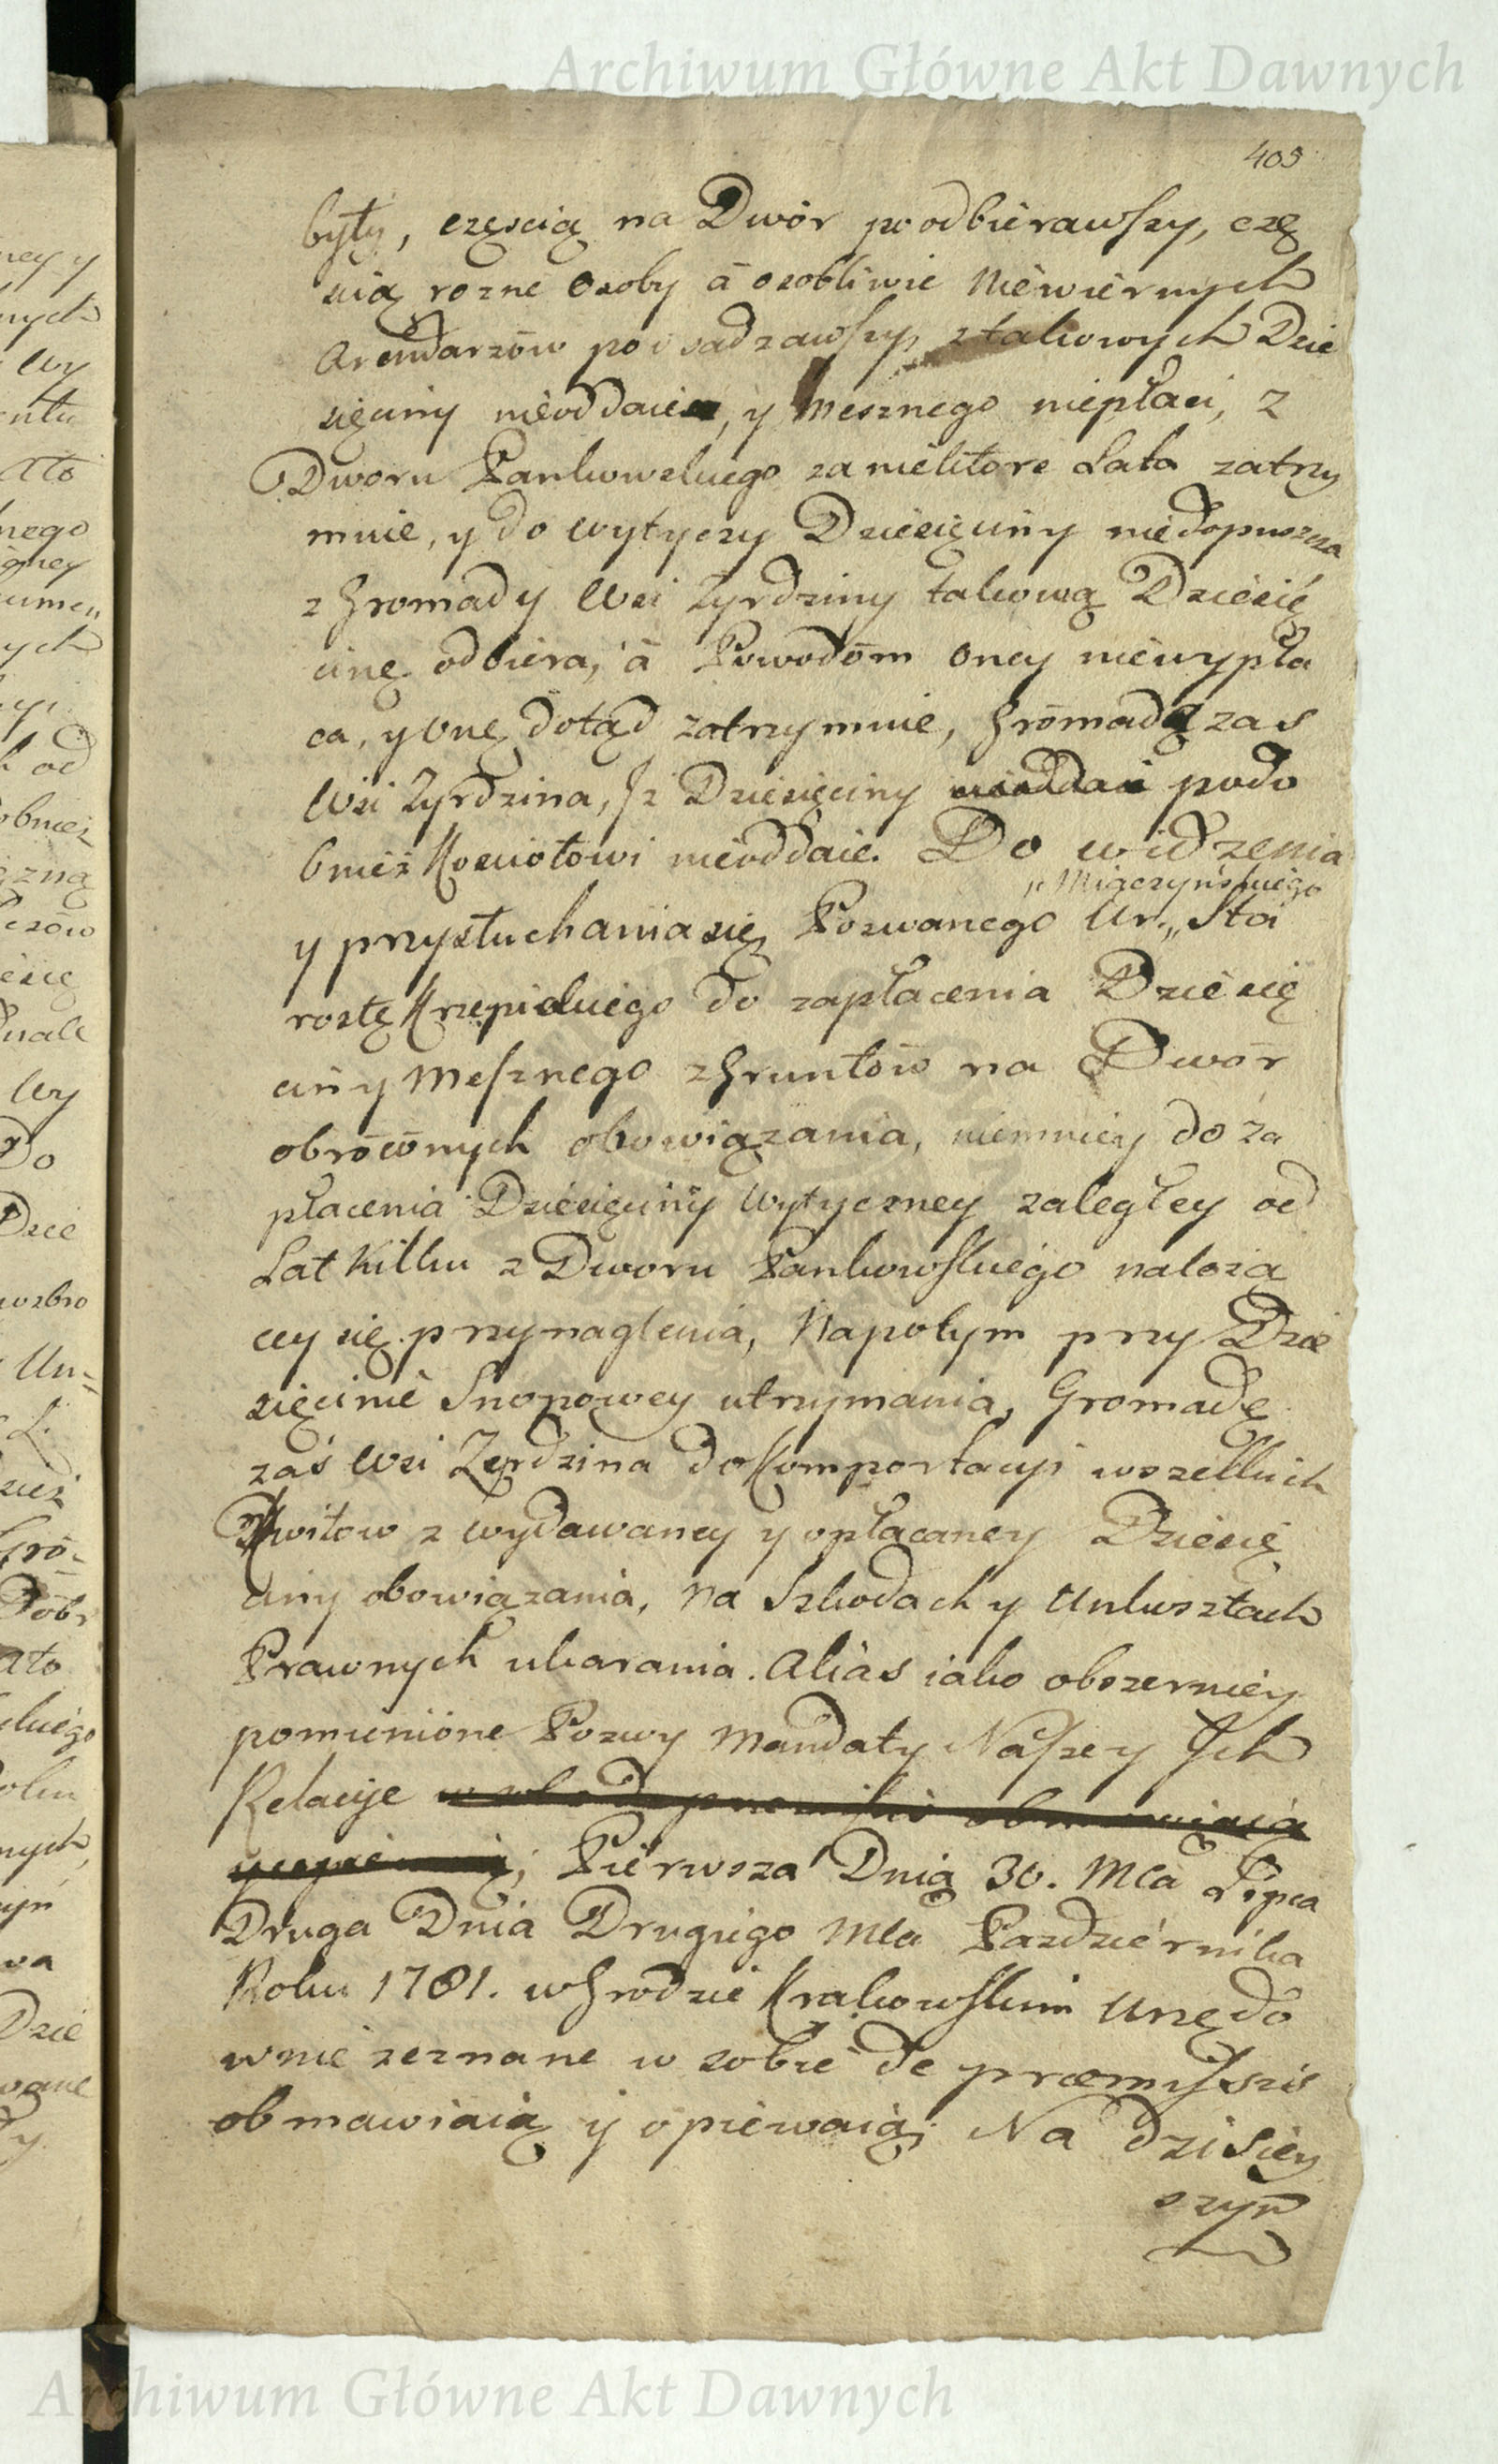 Archiwum Główne Akt Dawnych
405
były, częscią na Dwór poodbierawszy, czę
scią rozne Osoby á osobliwie Niewiernych
Arendarzów poosadzawszy, z takowych Dzie
sięciny nieoddaie, y Mesznego niepłaci, z
Dworu Pankowskiego za niektore Lata zatrzy
muie, y do wytyczy Dziesięciny niedopuszcza
z Gromady Wsi Zyrdziny takową Dziesię
cinę odbiera, á Powodóm oney niewypła
ca, y onę dotąd zatrzymuie, Gromada zas
Wsi Zyrdzina, Iż Dziesięciny podo
bnież Kosciołowi nieoddaie. Do widzenia
„Miączyńskiego
y przysłuchania się Pozwanego Ur. „Sta
rostę Krzepickiego do zapłacenia Dziesię
ciny Mesznego z Gruntów na Dwór
obróconych obowiązania, niemniey do za
płacenia Dziesięciny Wytyczney zaległey od
Lat Kilku z Dworu Pankowskiego należą
cey się przynaglenia, Napotym przy Dzie
sięcinie Snopowey utrzymania, Gromadę
zaś Wsi Zyrdzina do Komportacyi wszelkich
Kwitow z wydawaney y opłacaney Dziesię
ciny obowiązania, Na Szkodach y Unkusztach
Prawnych ukarania. Alias iako obszerniey
pomienióne Pozwy Mandaty Naszey Ich
Relacyje
Pierwsza Dnia 30. Mca Lipca
Druga Dnia Drugiego Mca Pazdziérnika
Roku 1781. w Grodzie Krakowskim Urzędo
wnie zeznane w sobie de præmissis
obmawiaią y opiewaią; Na dzisiey
szym
Archiwum Główne Akt Dawnych